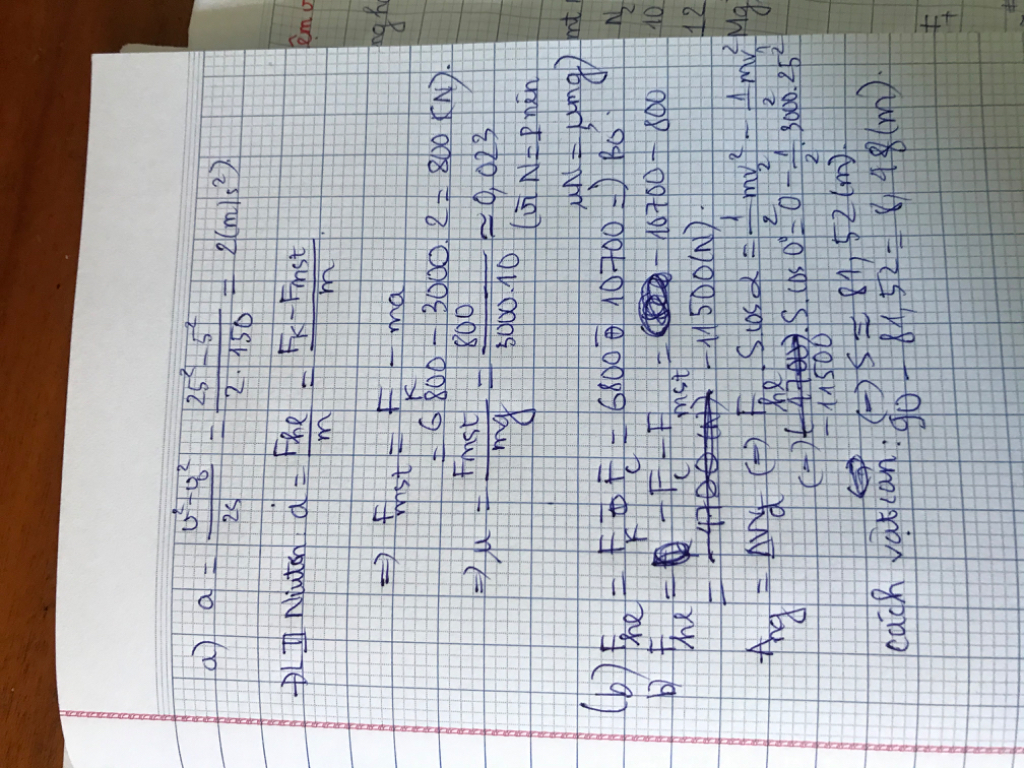 a) a = v² - v₀² / 2s = 25² - 5² / 2 . 150 = 2 (m/s²).
ĐL II Niuton a = Fhl / m = FK - Fmst / m
=> Fmst = FK - ma
= 6800 - 3000.2 = 800 (N).
=> μ = Fmst / mg = 800 / 3000.10 ≈ 0,023
(vì N = P nên
μN = μmg)
(b) Fhl = FK Fc = 6800 10700 => Bỏ.
b) Fhl = - Fc - Fmst = - 10700 - 800
= - 4700 (N) - 11500 (N).
Ang = ΔWđ (=) Fhl . S cos α = 1/2 mv² - 1/2 mv²
(=) (-4700) . S . cos 0° = 0 - 1/2 . 3000.25²
- 11500
(=) S ≈ 81,52 (m).
cách vật cản: 90 - 81,52 = 8,48 (m).
êm v
ngh
mt
N
10
12
Mg